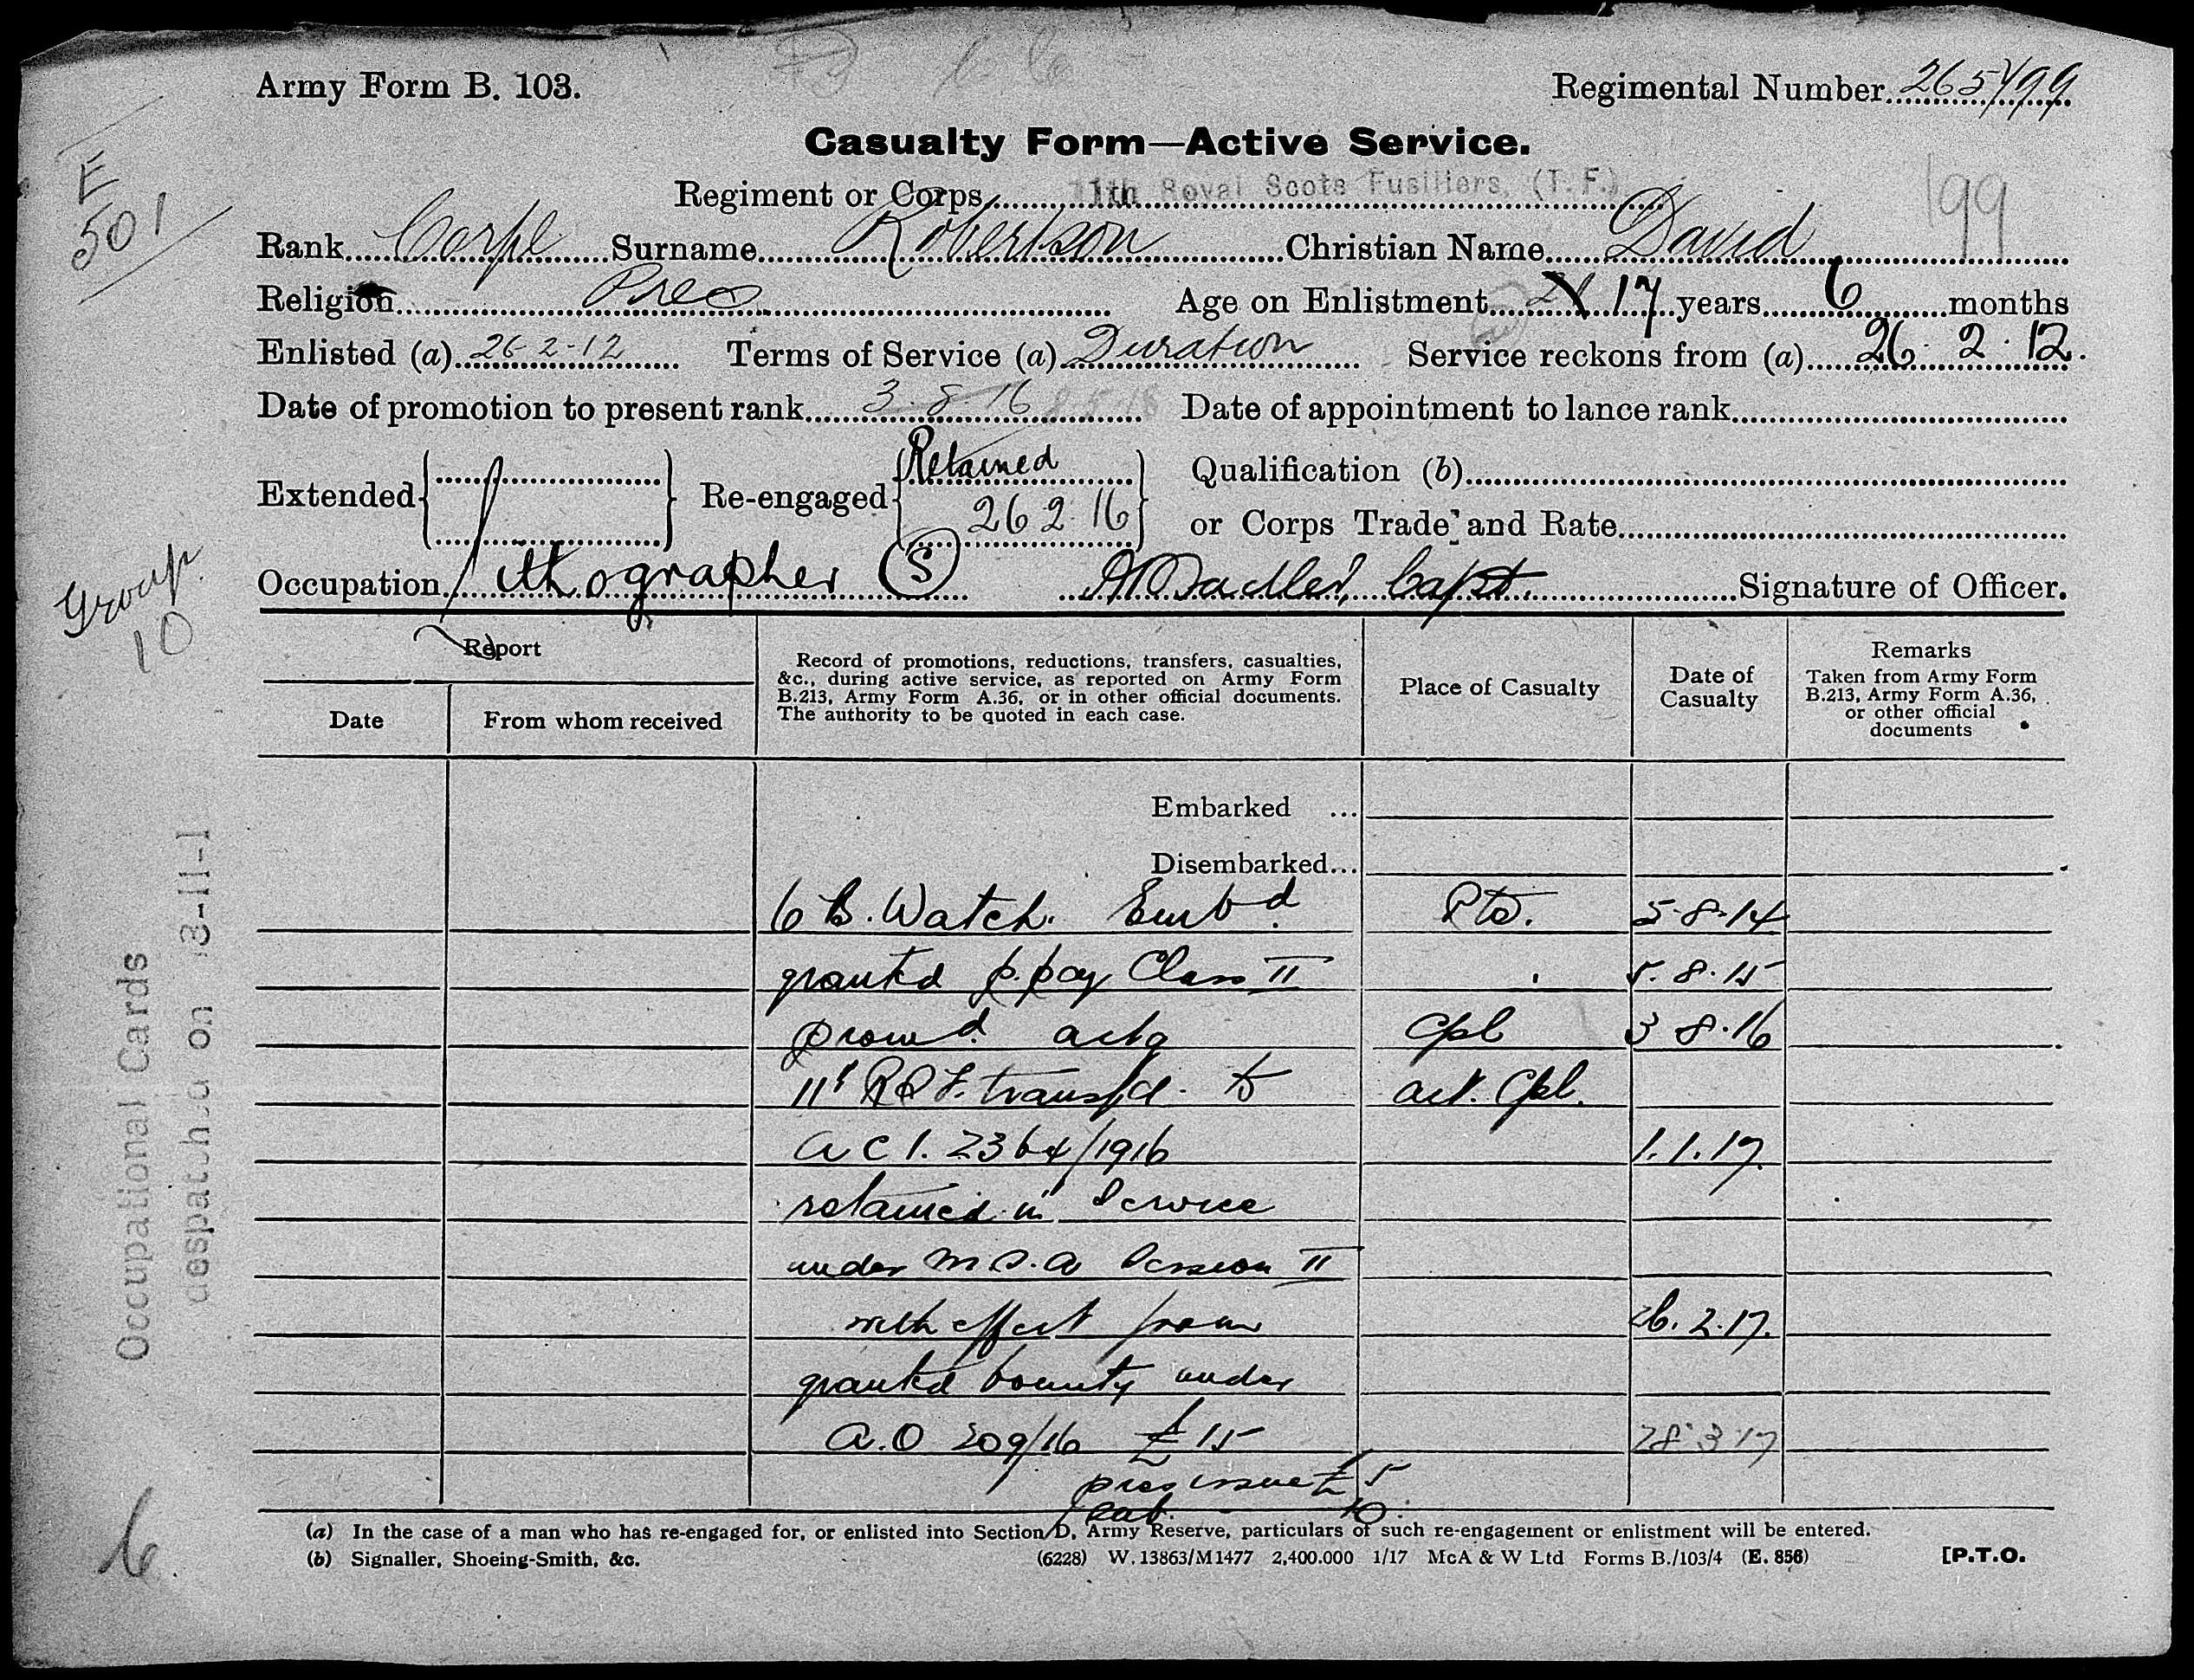 Army Form B. 103.
Regimental Number 265499
Casualty Form—Active Service.
Regiment or Corps 11th Royal Scots Fusiliers, (T.F.)
199
E
501
Rank Corpl Surname Robertson Christian Name David
Religion Pres Age on Enlistment 21 17 years 6 months
Enlisted (a) 26-2-12 Terms of Service (a) Duration Service reckons from (a) 26. 2. 12.
Date of promotion to present rank 3-8-16 8-5-18 Date of appointment to lance rank
Extended Re-engaged Retained 26 2 16 Qualification (b)
or Corps Trade and Rate
Occupation Lithographer (S) Capt. Signature of Officer.
Group 10
Report
Date
From whom received
Record of promotions, reductions, transfers, casualties, &c., during active service, as reported on Army Form B.213, Army Form A.36, or in other official documents. The authority to be quoted in each case.
Place of Casualty
Date of Casualty
Remarks
Taken from Army Form B.213, Army Form A.36, or other official documents
Embarked ...
Disembarked...
6 B. Watch. Embd. Pte. 5-8-14
granted p. pay Class II 5.8.15
promd. actg Cpl 3 8.16
11th RSF. transfd. to act. Cpl.
ACI. 2364/1916 1.1.17.
retained in Service
under M.S.A Session II
with effect from 26.2.17.
granted bounty under
A.O 209/16 £15 28 3 17
pres issue £5
10.
Occupational Cards
despatched on 3-11-1
6
(a) In the case of a man who has re-engaged for, or enlisted into Section D, Army Reserve, particulars of such re-engagement or enlistment will be entered.
(b) Signaller, Shoeing-Smith, &c.
(6228) W. 13863/M1477 2,400.000 1/17 McA & W Ltd Forms B./103/4 (E. 856)
[P.T.O.